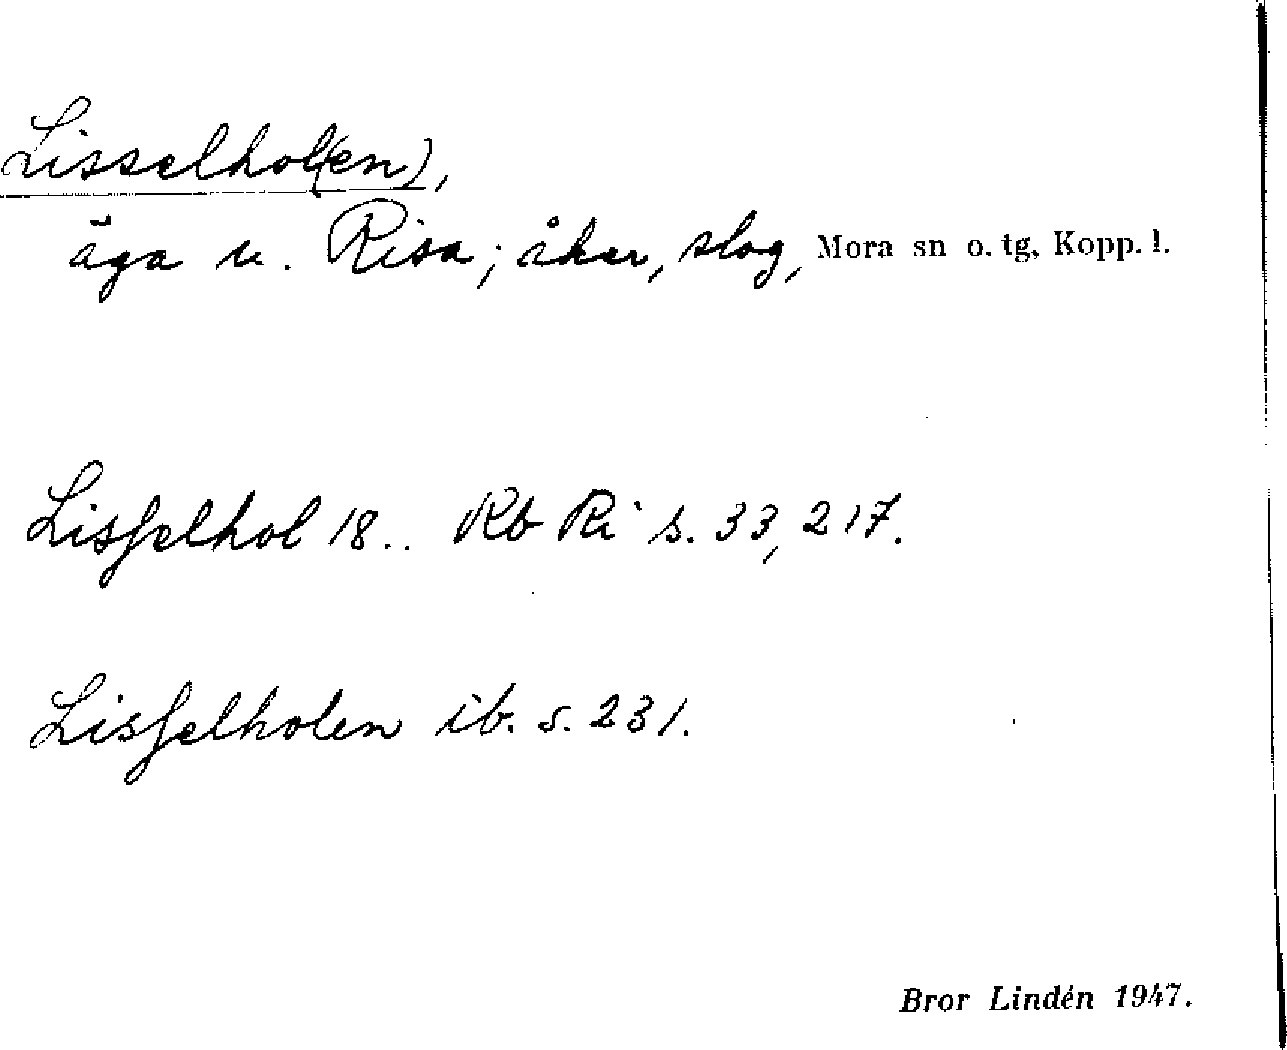 Lisselhol(en),
äga u. Risa; åker, slog, Mora sn o. tg, Kopp. l.
Lisſelhol 18.. Rb Ri s. 33, 217.
Lisſelholen ib. s. 231.
Bror Lindén 1947.